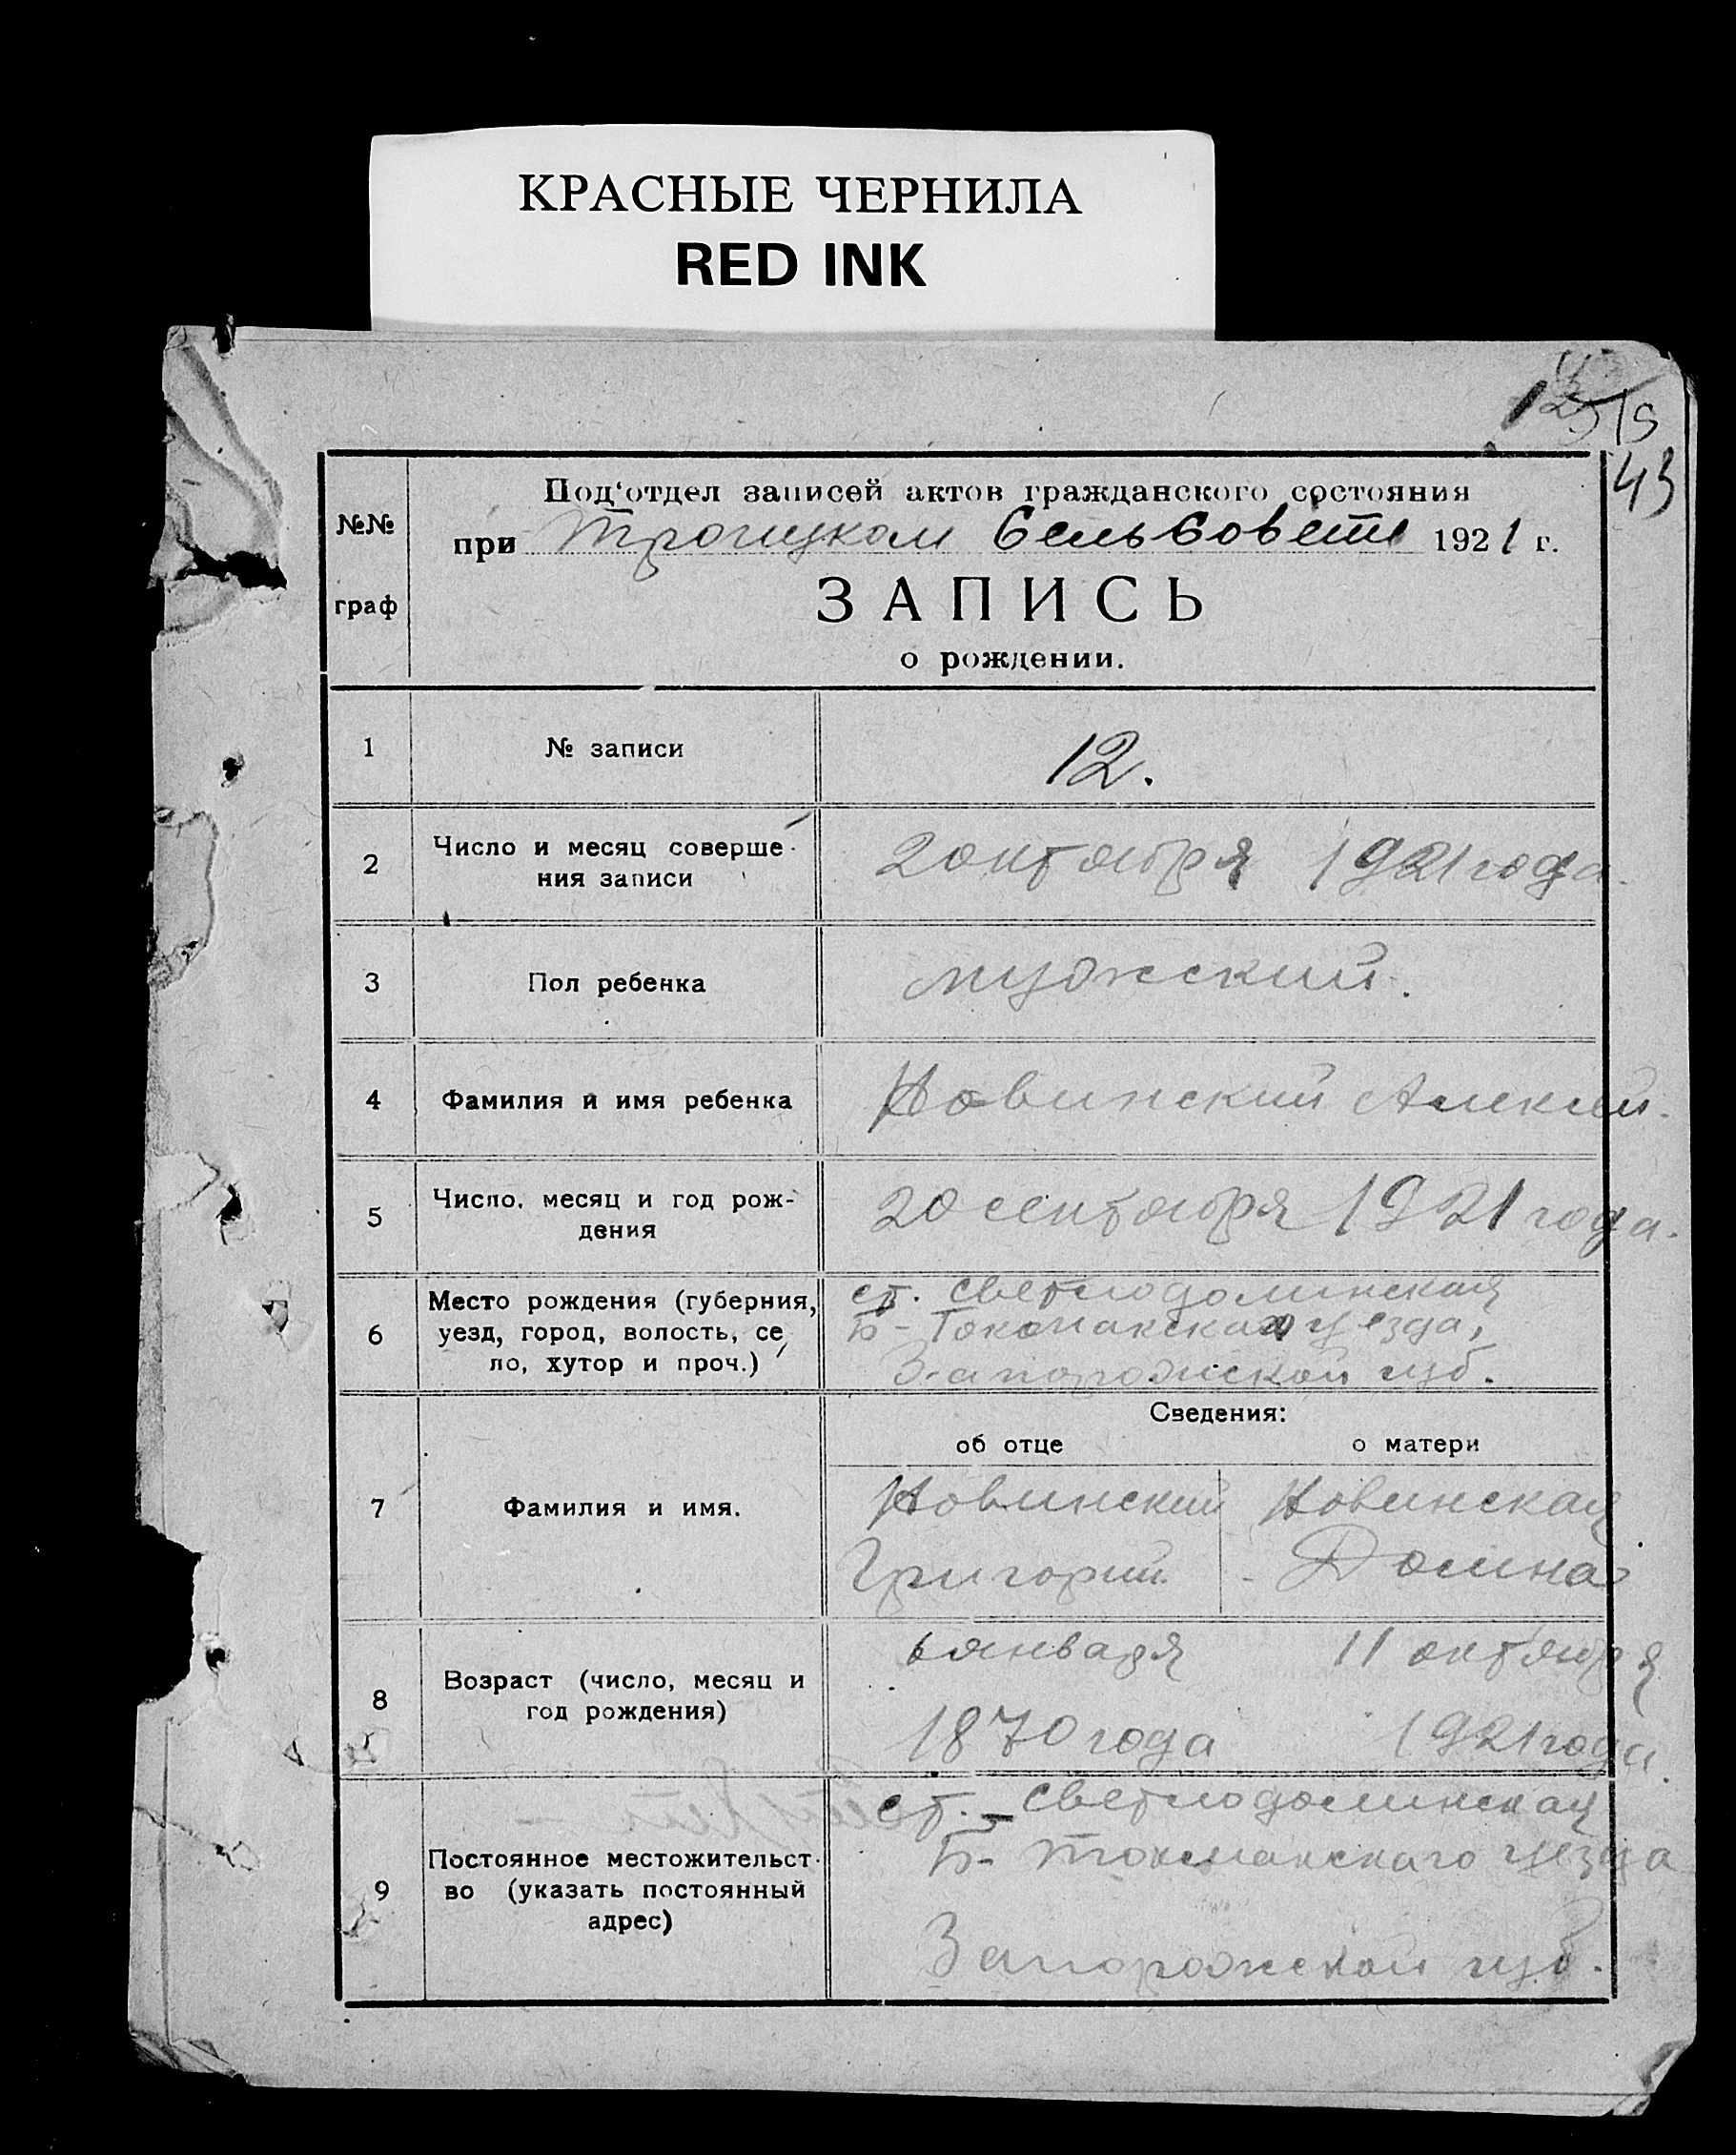 КРАСНЫЕ ЧЕРНИЛА
RED INK
43
№№
граф
Под'отдел записей актов гражданского состояния
при Троицком Сельсовете 1921 г.
ЗАПИСЬ
о рождении.
1 № записи 12.
2 Число и месяц соверше-
ния записи
2 октября 1921 года.
3 Пол ребенка мужский.
4 Фамилия и имя ребенка Новинский Алексей.
5 Число, месяц и год рож-
дения
20 сентября 1921 года.
6 Место рождения (губерния,
уезд, город, волость, се
ло, хутор и проч.)
ст. Светлодолинская
Б-Токмакская уезда,
Запорожской губ.
Сведения:
об отце о матери
7 Фамилия и имя.
Новинский Новинская
Григорий Домна
8 Возраст (число, месяц и
год рождения)
6 января 11 октября
1870 года 1921 года.
9 Постоянное местожительст-
во (указать постоянный
адрес)
ст. Светлодолинская
Б-Токмакскаго уезда
Запорожской губ.